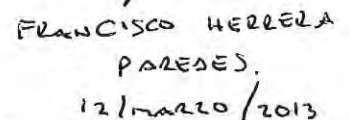 FRANCISCO HERRERA
PAREDES.
12/MARZO/2013